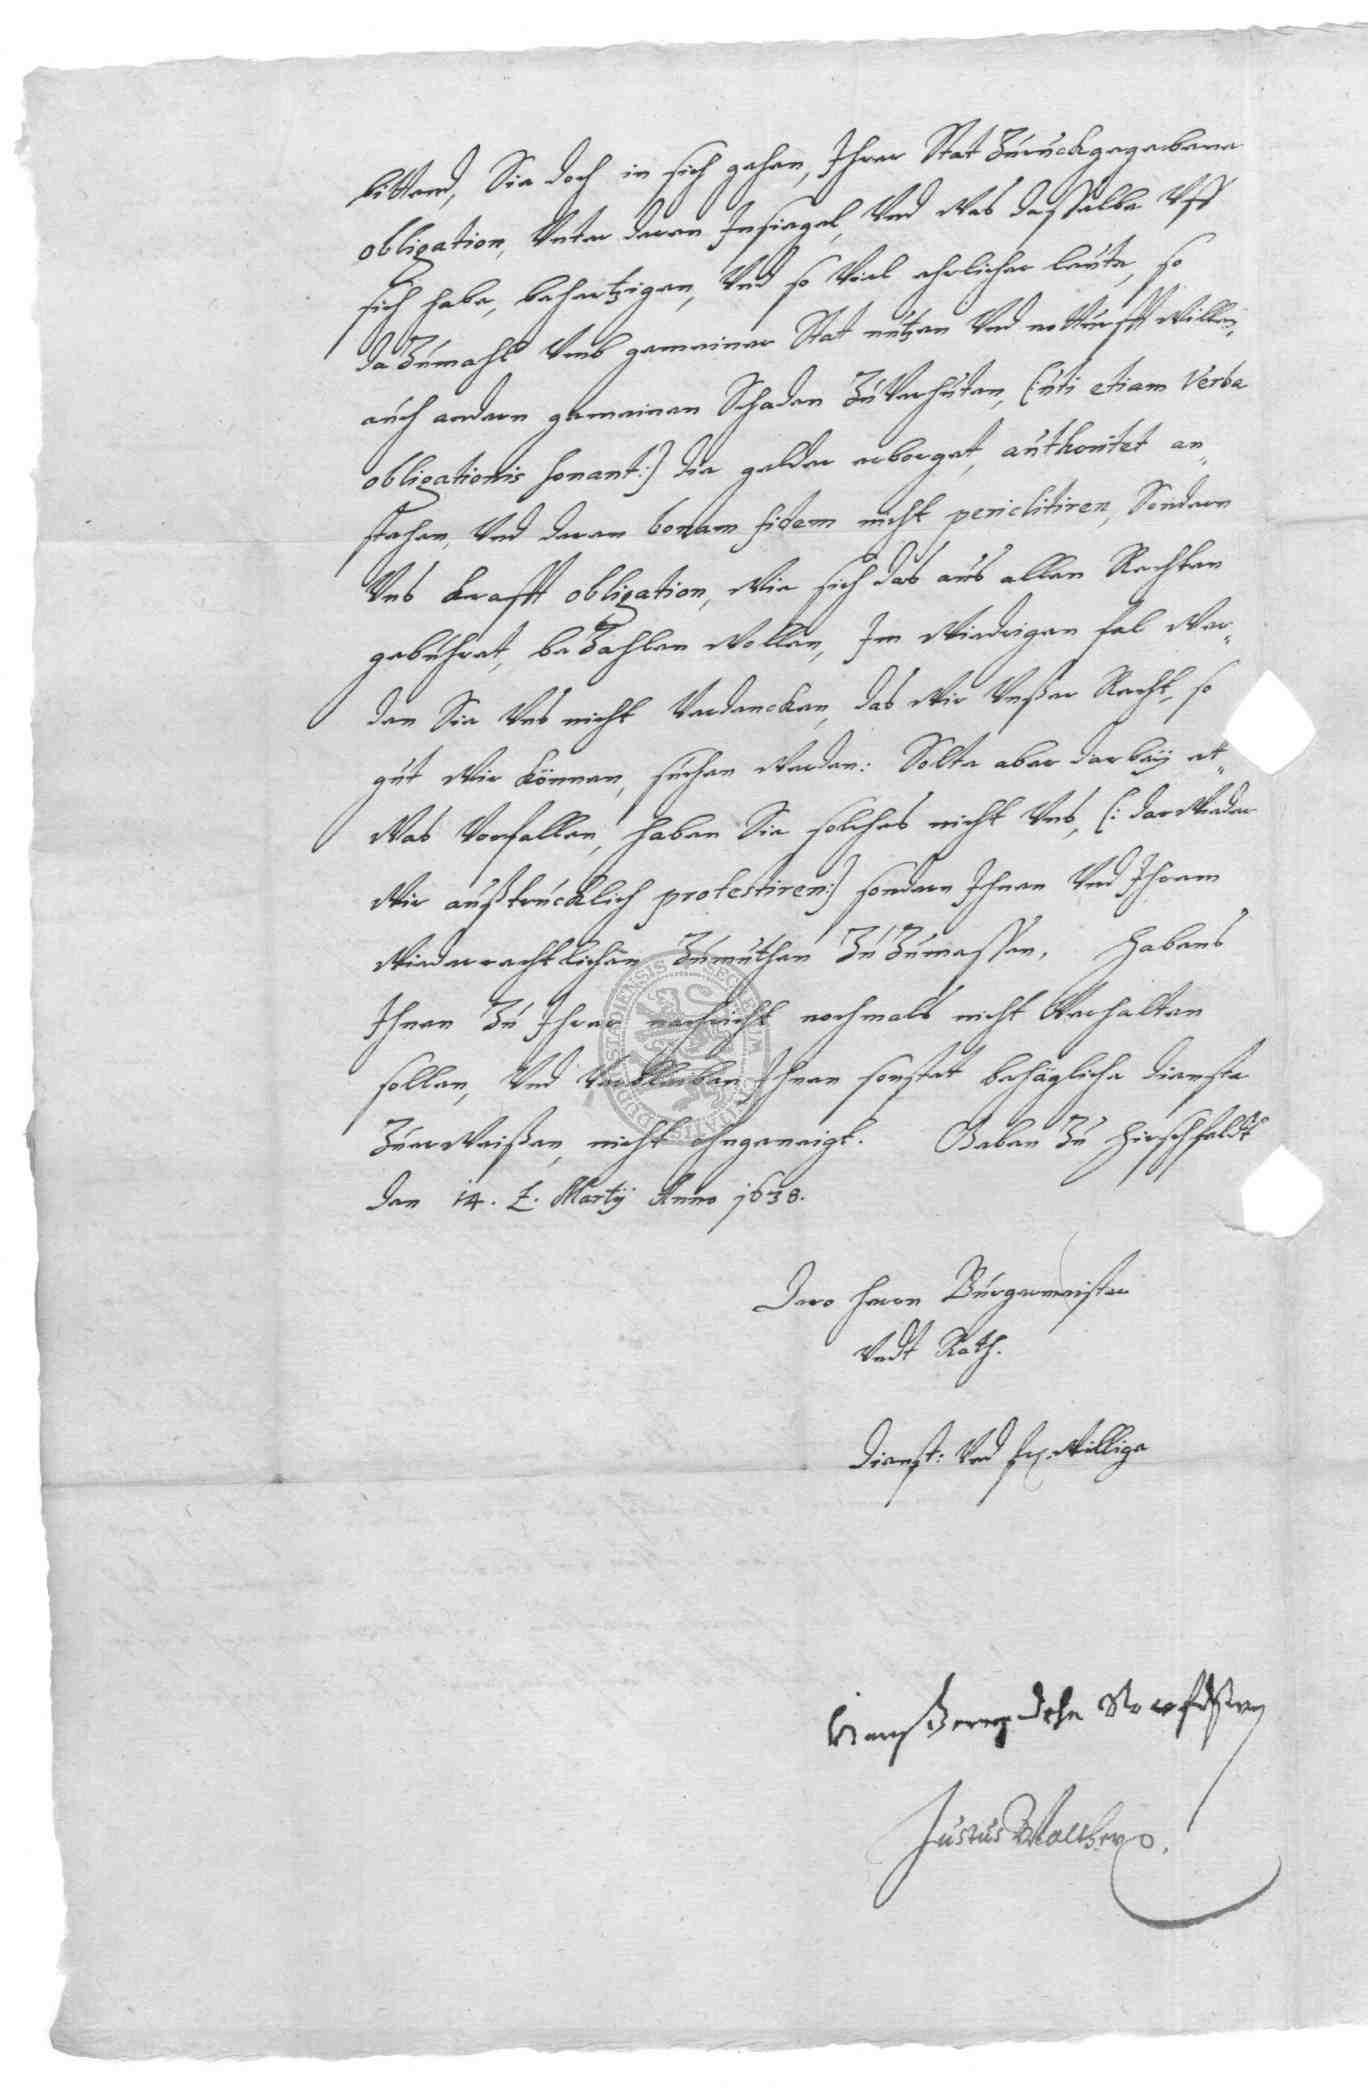 bittend, Sie doch in sich gehen, Ihrer Stat Zuruckgegebene
obligation, Unter deren Insiegel, Und Was dasselbe Uff
sich habe, behertzigen, Und so Viel ehrlicher leute, so
da Zumahl Umb gemeiner Stat nutzen Und notturfft Willen,
auch andern gemeinen Schaden Zu Verhüten, (: uti etiam Verba
obligationis sonant :) die gelder erborget, authoritet an„
stehen, Und deren bonam fidem nicht periclitiren, Sondern
Uns Krafft obligation, Wie sich das aus allen Rechten
gebühret, be Zahlen Wollen, Im Wiedrigen fal Wer„
den Sie Uns nicht Verdencken, das Wir Unßer Recht, so
gut Wir können, suchen Werden: Solte aber darbey et„
Was Vorfallen, haben Sie solches nicht Uns, (: darWieder
Wir außtrücklich protestiren :) sondern Ihnen Und Ihrem
Wiederrechtlichen Zumuthen Zu Zumessen. Habens
Ihnen Zu Ihrer nachricht nochmals nicht Verhalten
sollen, Und Verbleiben Ihnen sonstet behägliche dienste
ZuerWeißen, nicht ohngeneigt. Geben Zu Hirschfeldt
den 14. t. Martij Anno 1638.
Dero Herrn Bürgermeister
Undt Rath.
Dienst: Und Willige
Justus
SECRETUM CIVITATIS DUDERSTADIENSIS